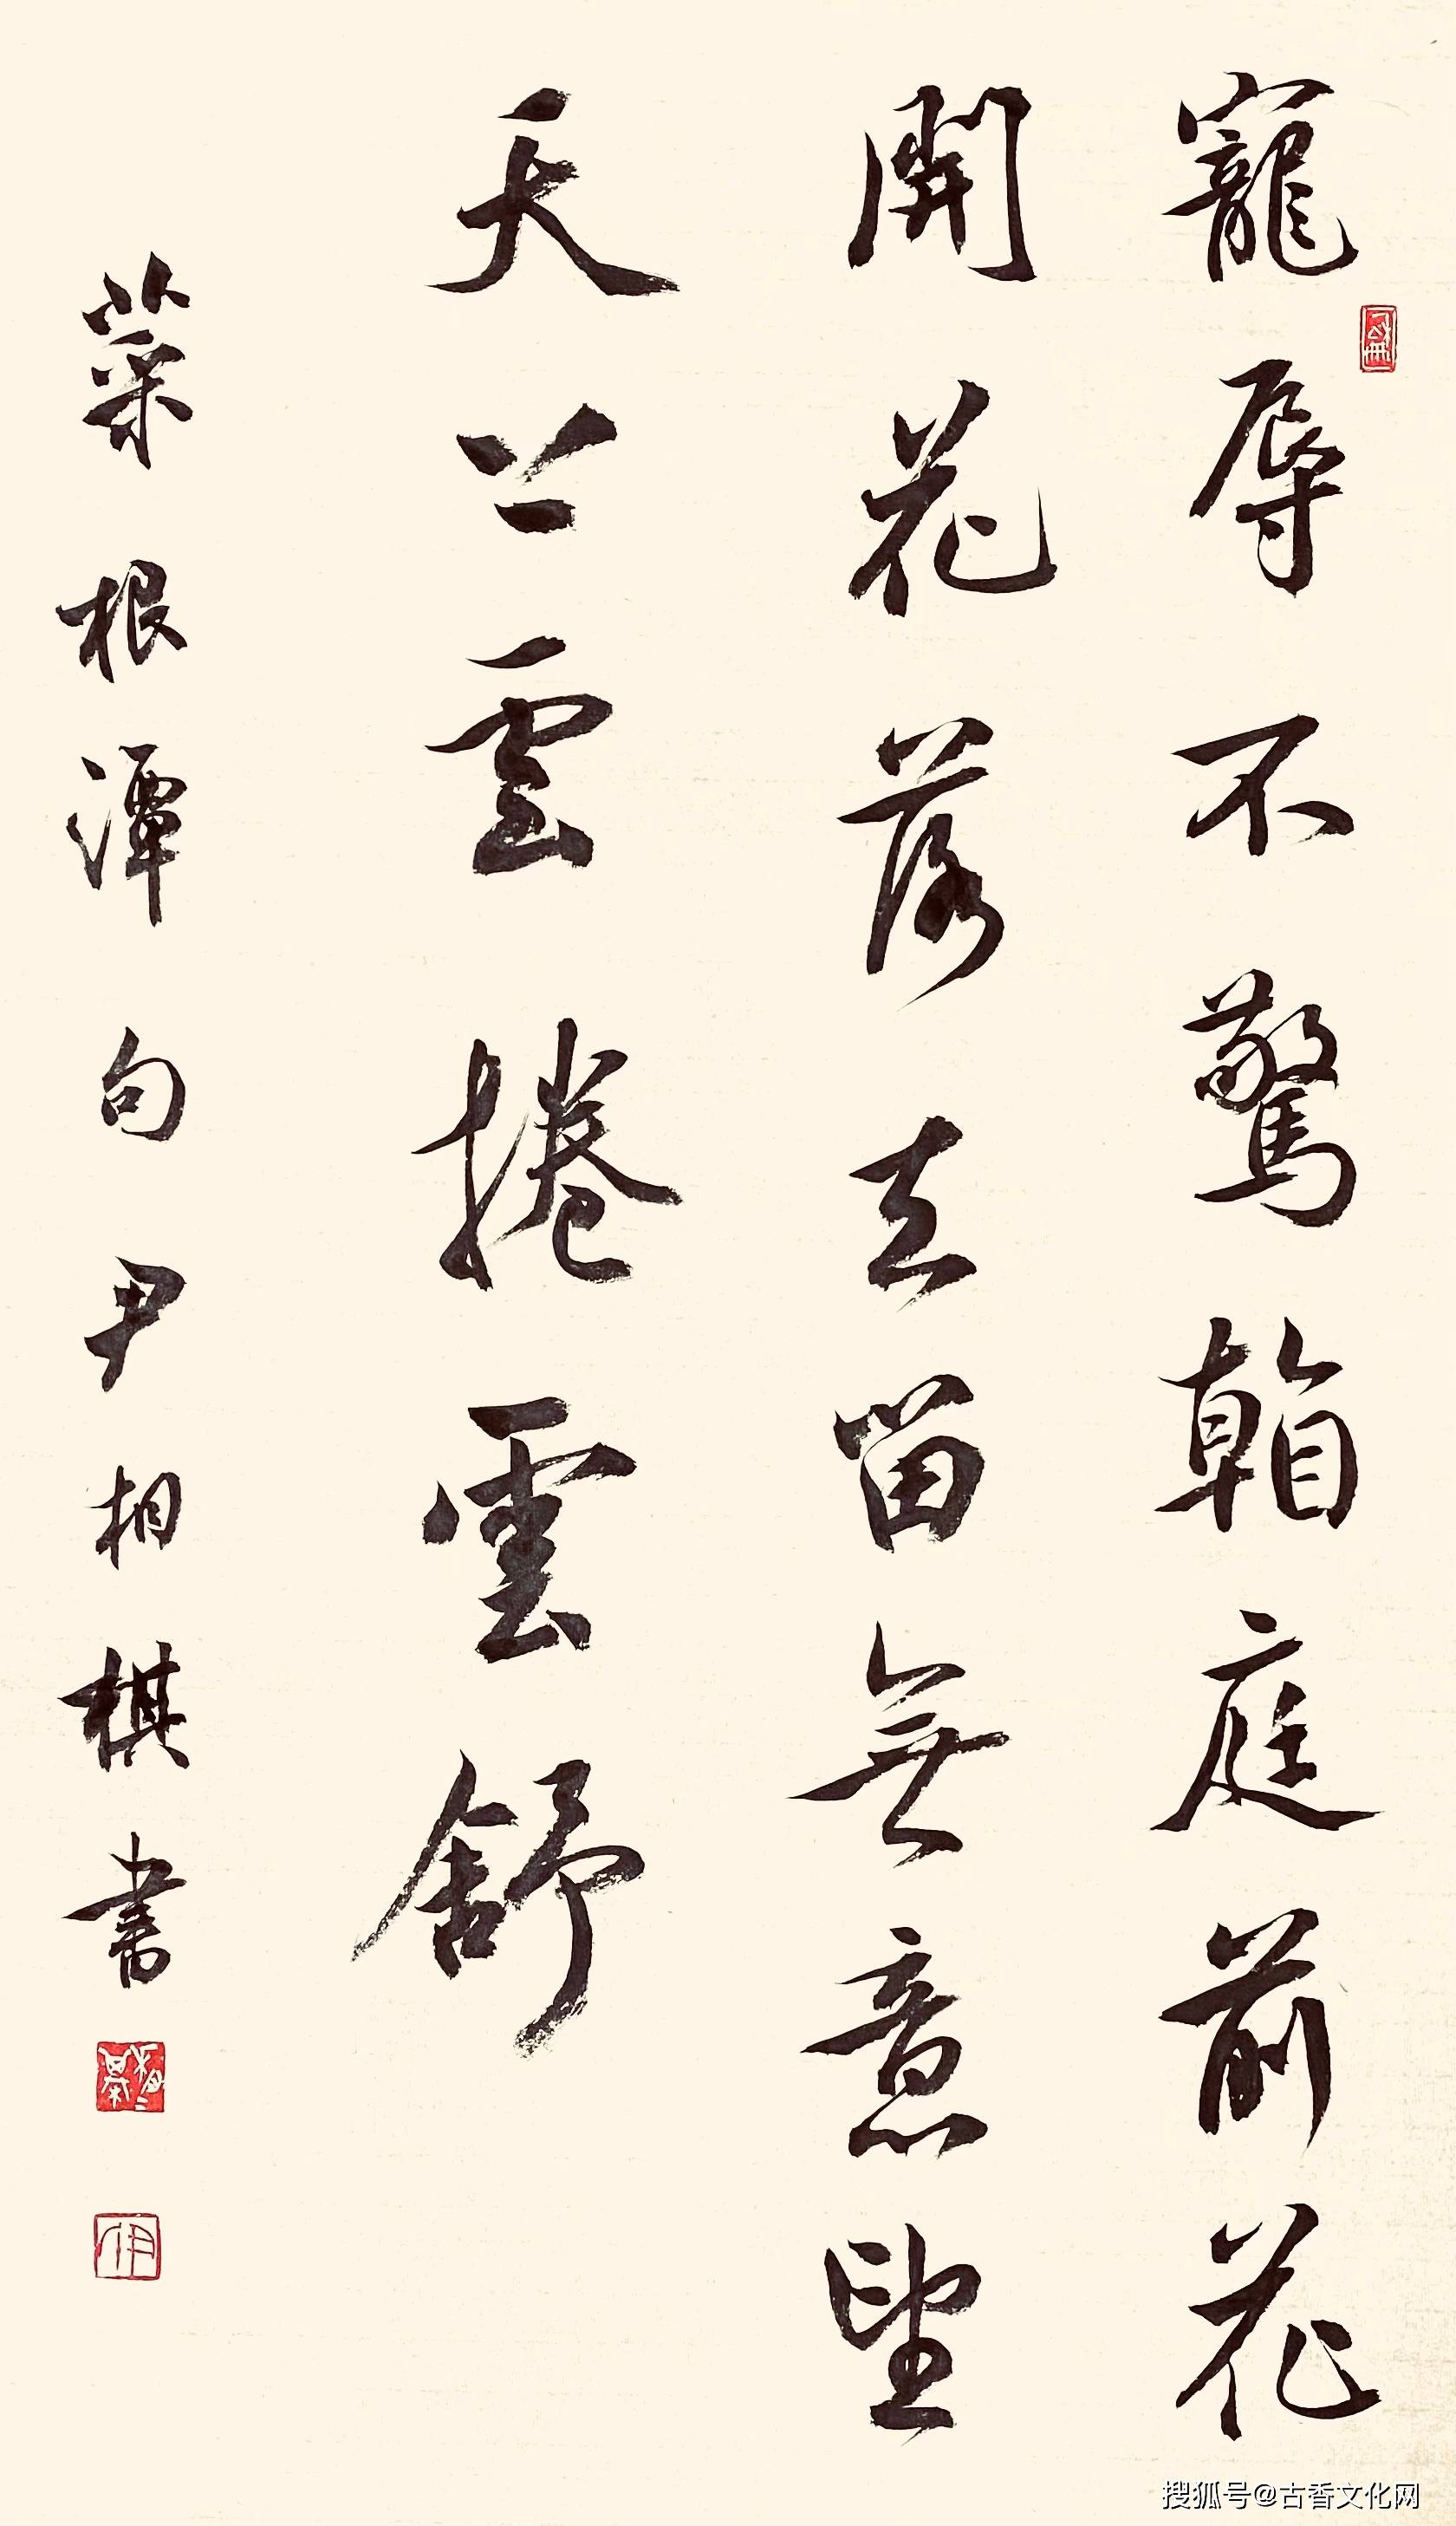 寵辱不驚看庭前花
開花落去留無意望
天上雲捲雲舒
菜根潭句尹相棋書
搜狐号@古香文化网